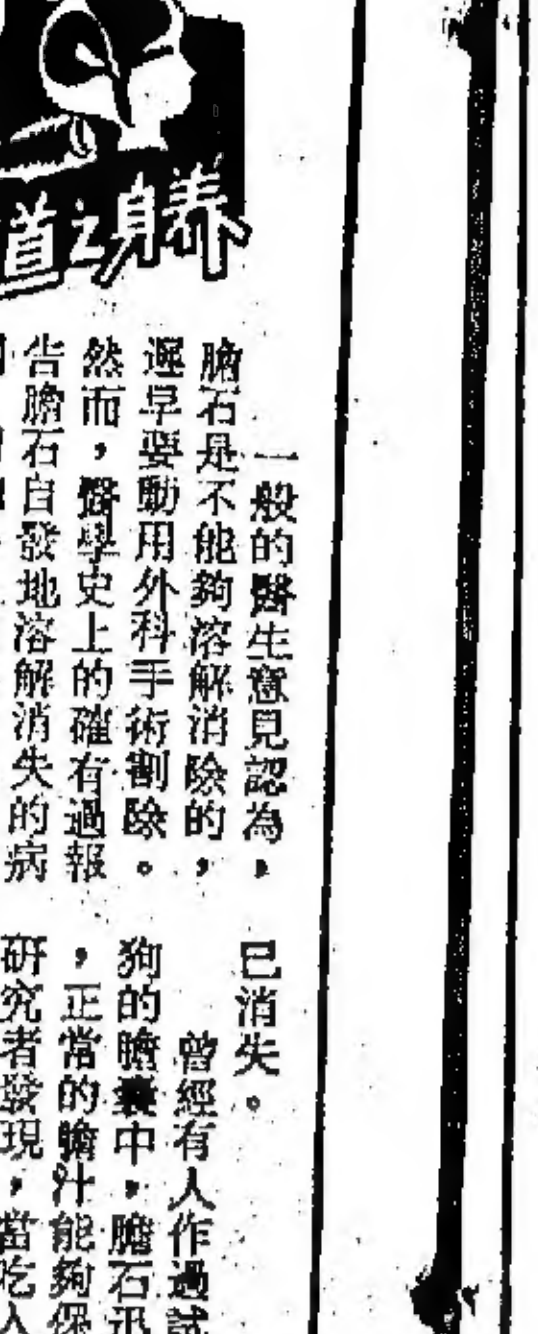 養身之道
一般的醫生意見認為，
膽石是不能夠溶解消除的，
遲早要動用外科手術割除。
然而，醫學史上的確有過報
告膽石自發地溶解消失的病
已消失。
曾經有人作過試
狗的膽囊中，膽石迅
，正常的膽汁能夠保
研究者發現，當吃入